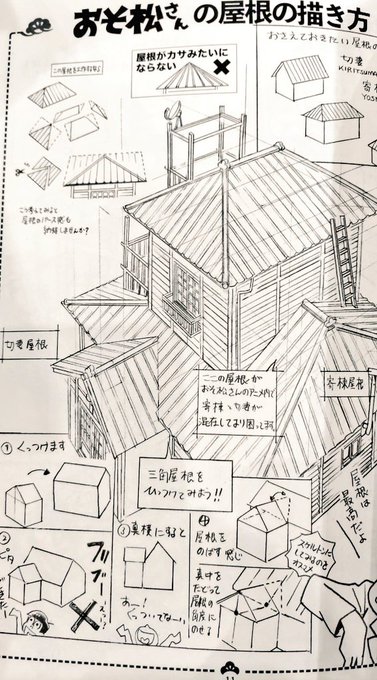 おそ松さんの屋根の描き方
おさえておきたい屋根の
切妻
KIRITSUMA
寄棟
YOSE
屋根がカサみたいに
ならない
この屋根を工作すると
こう考えてみると
屋根のパース感も
納得しませんか?
切妻屋根
ここの屋根が
おそ松さんのアニメ内で
寄棟、切妻が
混在しており困ってます
寄棟屋根
三角屋根を
ひっつけてみよう!!
屋根は
最高だよ
① くっつけます
②
ピタ
ブッブー
③ 真横にすると
あー!
くっついてなーい
④
屋根を
のばす感じ
スケルトンに
してみるのも
オススメ
真中を
たどって
屋根の
角度に
のせる
11